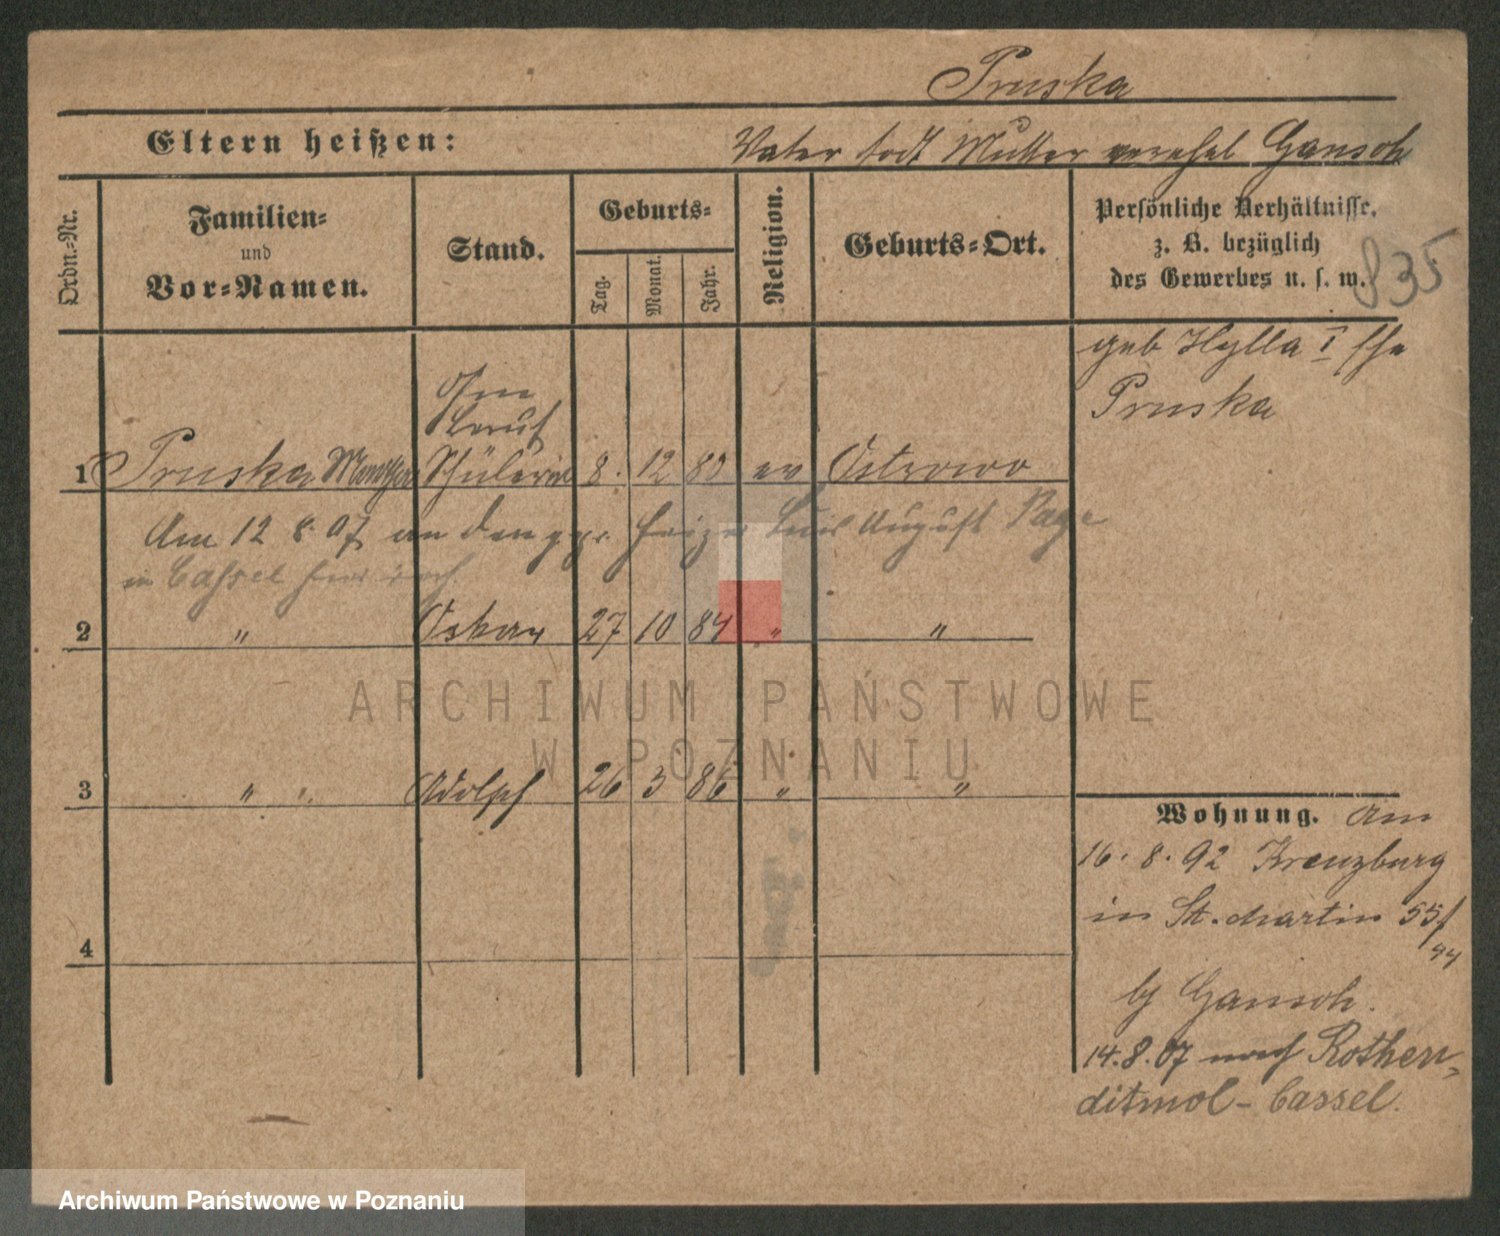 Pruska
Eltern heißen: Vater todt Mutter verehel Gansch
Ordn.-Nr.
Familien-
und
Vor-Namen.
Stand.
Geburts-
Tag.
Monat.
Jahr.
Religion.
Geburts-Ort.
Persönliche Verhältnisse,
z. B. bezüglich
des Gewerbes u. s. w.
835
geb Hylla I Ehe
Pruska
Ohne
Beruf
1 Pruska Schülerin 8. 12 83 ev Ostrowo
Am 12 8. 07 an den Heizer August Page
in Cassel
2 " Oskar 27 10 84 " "
3 " " Adolph 26 3 86 " "
4
Wohnung. Am
16. 8. 92 Kreuzburg
in St. Martin 55/
44
b/ Gansch.
14.8.07 nach Rothen-
ditmol - Cassel.
ARCHIWUM PAŃSTWOWE
W POZNANIU
Archiwum Państwowe w Poznaniu